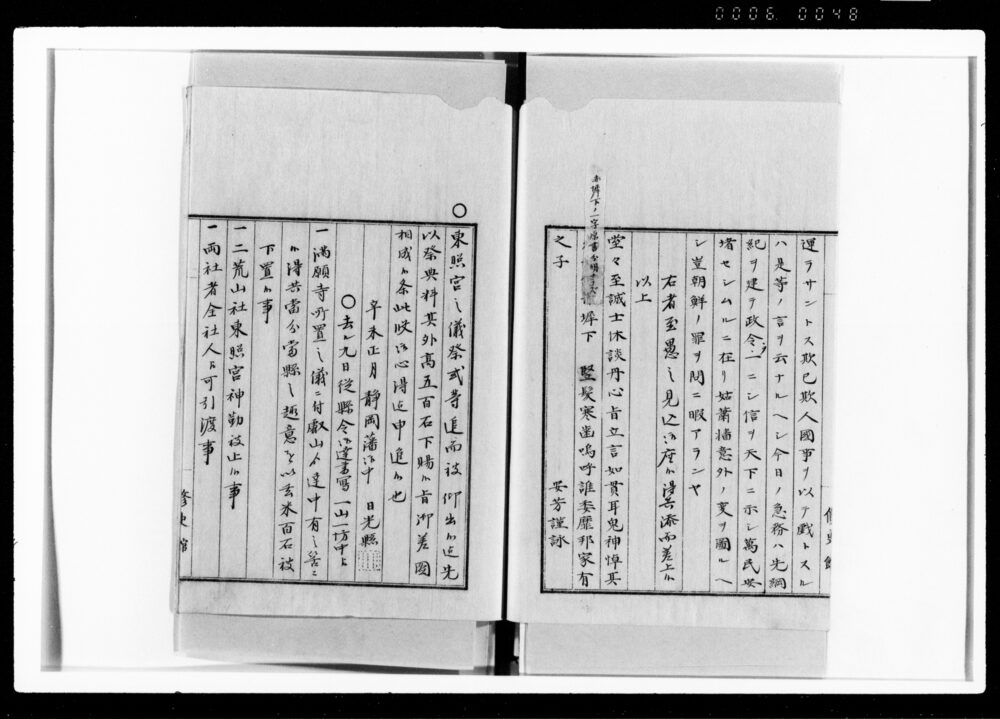 0006 0048
運ラサントス欺已欺人國事ヲ以テ戯トスル
ハ是等ノ言ヲ云ナルヘシ今日ノ急務ハ先綱
紀ヲ建テ政令一ニシ信ヲ天下ニ示シ萬民安
堵セシムルニ在リ姑蕭墻意外ノ変ヲ圖ルヘ
シ豈朝鮮ノ罪ヲ問ニ暇アランヤ
右者至愚之見込御座候得共添而差上候
以上
堂々至誠士休談丹心肯立言如貫耳鬼神悼其
墀下 竪髪寒歯嗚呼誰委靡邦家有
之子
安芳謹詠
修史館
東照宮之儀祭式等追而被 仰出候迄先
以祭典料其外高五百石下賜候旨御差圖
相成候条此段御心得迄申進候也
辛未正月 静岡藩御中 日光縣
〇去ル九日従縣令御達書写 一山一坊中ゟ
一満願寺所置之儀ニ付叡山ゟ達中有之筈ニ
候得共當分當縣之趣意を以玄米百石被
下置候事
一二荒山社東照宮神勤被止候事
一両社者全社人ニ可引渡事
修史館